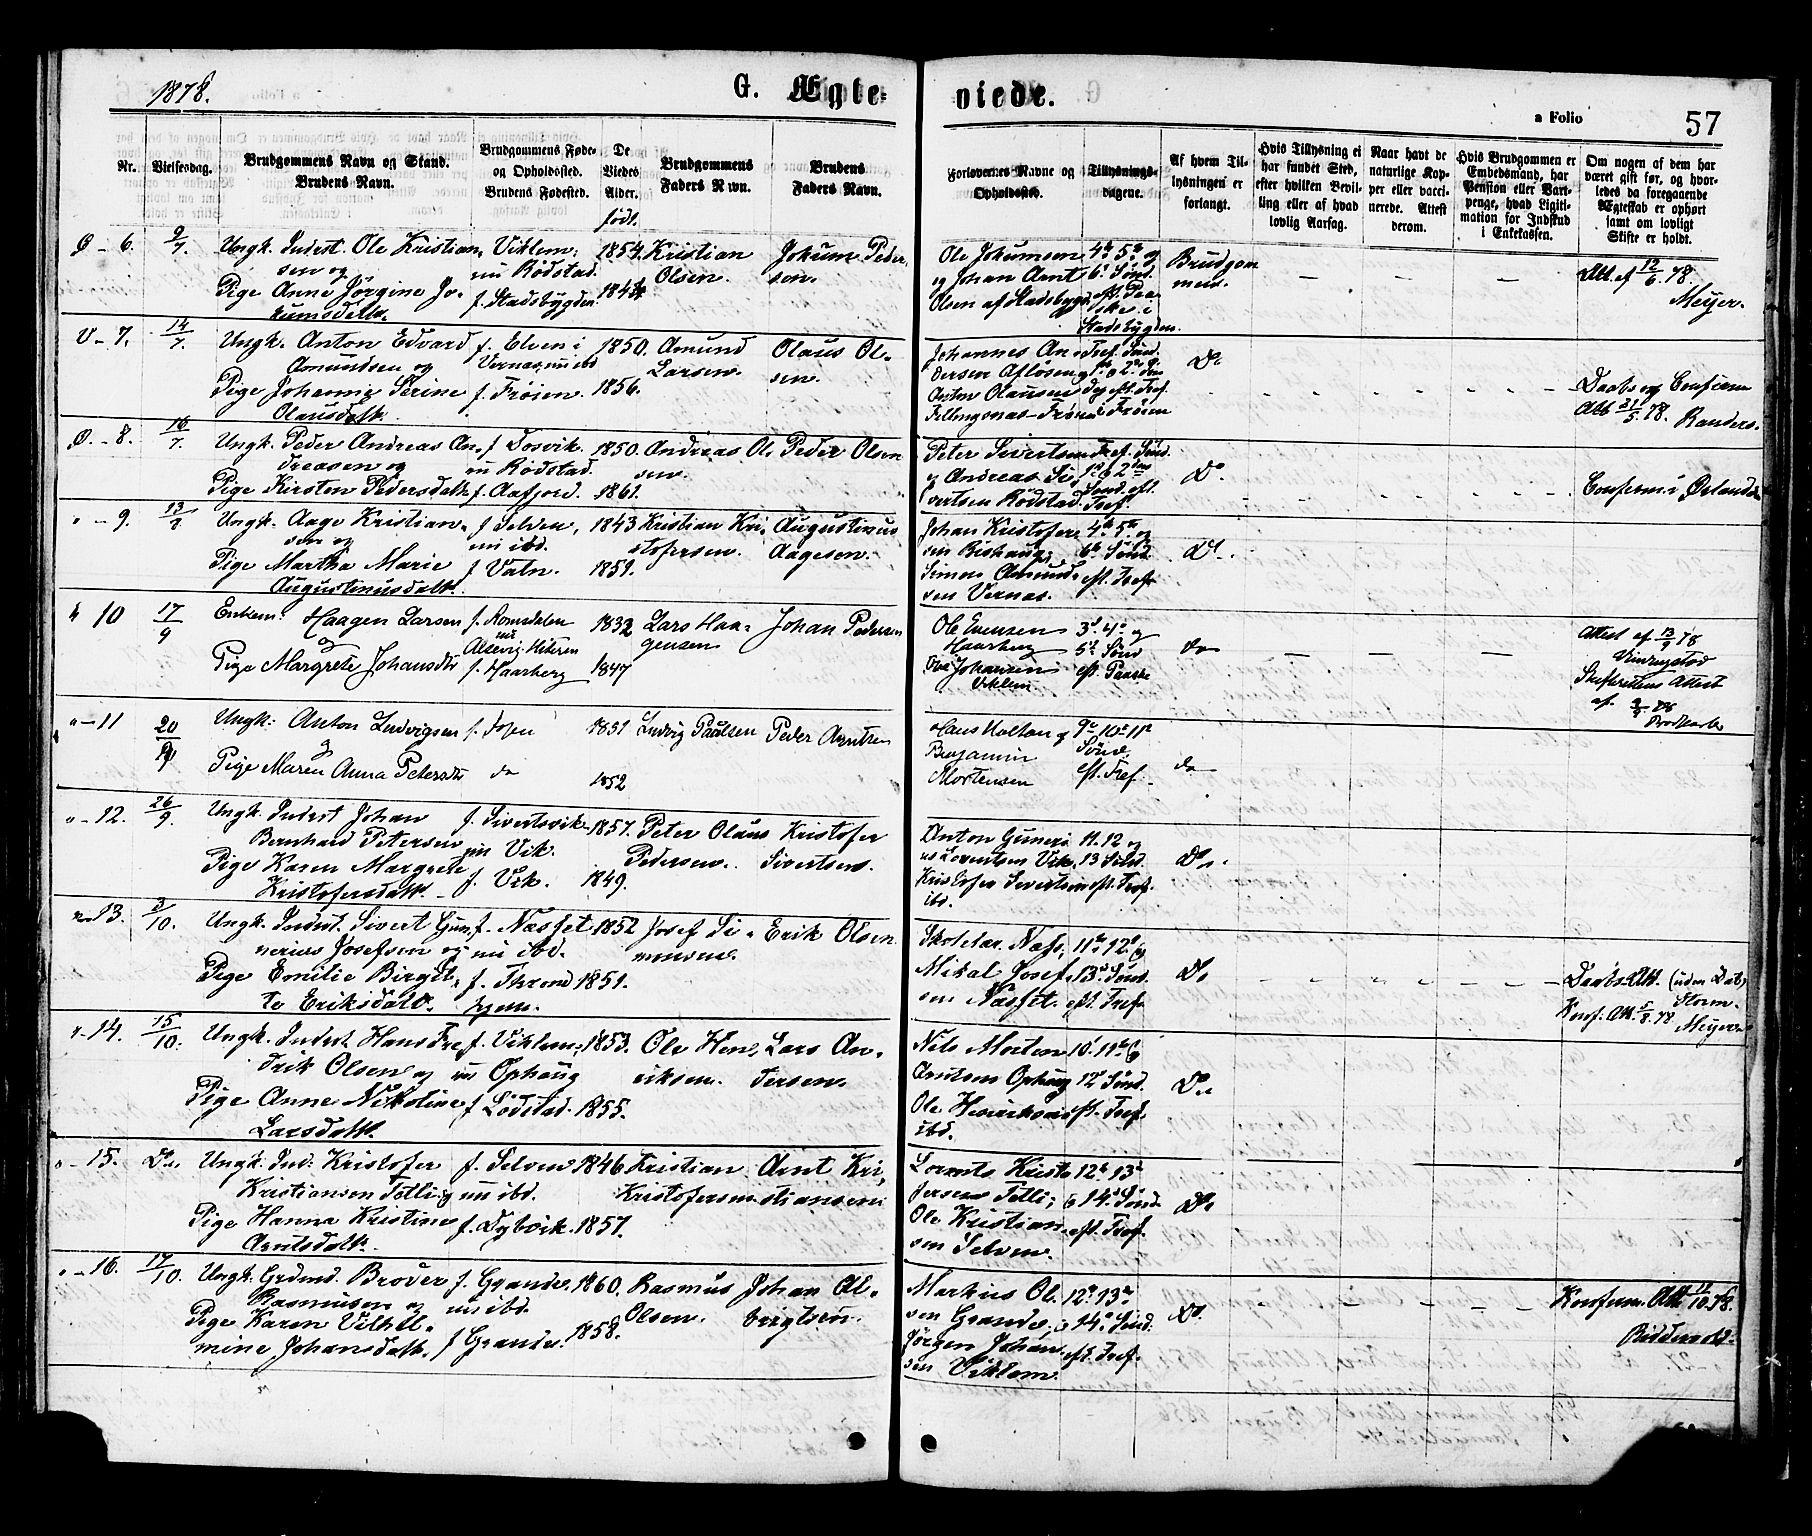 1878.
G. Ægteviede.
a Folio
57
Nr.
Vielsesdag.
Brudgommens Navn og Stand.
Brudens Navn.
Brudgommens Føde-
og Opholdssted.
Brudens Fødested.
De
Viedes
Alder.
født.
Brudgommens
Faders Navn.
Brudens
Faders Navn.
Forlovernes Navne og
Opholdssted.
Tillysnings-
dagene.
Af hvem Til-
lysningen er
forlangt.
Hvis Tillysning ei
har fundet Sted,
efter hvilken Bevil-
ling eller af hvad
lovlig Aarsag.
Naar havt de
naturlige Kop-
per eller vacci-
nerede. Attest
derom.
Hvis Brudgommen er
Embedsmand, har
Pension eller Vart-
penge, hvad Ligiti-
mation for Indskud
i Enkekassen.
Om nogen af dem har
været gift før, og hvor-
ledes da foregaaende
Ægteskab er ophørt
samt om lovligt
Skifte er holdt.
Ø - 6.
Ungk. Inderst. Ole Kristian-
sen og
Pige Anne Jørgine Jo-
kumsdatt.
Viklem;
nu Rødstad.
f. Stadsbygden
1854.
Kristian
Olsen.
Jokum Peder-
sen.
Ole Jokumsen
og Johan Arnt
Olsen af Stadsbygd.
4de 5te og
6te Sønd.
eft. Paa-
ske i
Stadsbygden.
Brudgom
men.
Att. af 12/6. 78.
Meyer.
V - 7.
14/7.
Ungk. Anton Edvard
Amundsen og
Pige Johanna Serine
Olausdatt.
f. Elven i
Vernæs, nu ibd
f. Frøien.
1850.
1856.
Amund
Larsen.
Olaus Ol-
sen.
Do
Daabs og Confirm
Att 21/5. 78. Randers.
Ø. - 8.
16/7.
Ungk. Peder Andreas An-
dreasen og
Pige Kirsten Pedersdatt.
nu Rødstad.
f. Aafjord.
1850.
1861.
Andreas Ol-
sen.
Peder Olsen
Peter Sivertsen
og Andreas Si-
vertsen Rødstad.
Do.
Conferm. i Ørlandet
" - 9.
Ungk. Aage Kristian-
sen og
Pige Martha Marie
Augustinusdatt.
f. Selven,
nu ibd.
f. Valn.
1843
1851.
Kristian Kri-
stofersen.
Augustinus
Aagesen.
Johan Kristofer-
sen Rishaug;
Simon Amund-
sen Vernæs.
4de 5te og
6te Sønd.
eft. Tref.
Do.
" 10
17/9
Enkem. Haagen Larsen
og
Pige Margrete Johansdtr
f. Romsdalen
f. Haarberg
1832
1847
Lars Haa-
gensen
Johan Pedersen
Ole Evensen
Haarberg
Johansen
Viklem
3d 4de og
5te Sønd
eft. Paaske
do
Attest af 13/9 78
Skifterettens Attest
" - 11
20/9
Ungk: Anton Ludvigsen
og
Pige Maren Anna Petersdtr
do
1851
1852
Ludvig Paulsen
Peder Arntsen
Hans Holtan og
Benjamin
Mortensen
9de 10de 11te
Sønd.
eft. Tref.
do
" - 12.
26/9.
Ungk. Inderst Johan
Bernhard Petersen
Pige Karen Margrete
Kristofersdatt.
f. Sivertsvik.
nu Vik.
f. Vik.
1857.
1849.
Peter Olaus
Pedersen.
Kristofer
Sivertsen.
Anton Guneri-
us Lorentsen Vik,
Kristofer Sivertsen
ibd.
11. 12 og
13 Sønd.
eft. Tref.
Do.
" - 13.
Ungk. Inderst. Sivert Gun-
nerius Josefsen og
Pige Emilie Birgit-
te Eriksdatt.
f. Næsset
nu ibd.
f. Thrond-
hjem.
1852
1851.
Josef Si-
monsen.
Erik Olsen
Skolelær. Næss,
Mikal Josef-
sen Næsset.
11te 12te og
13de Sønd.
eft. Tref.
Do
Daabs-Att. (uden Dat)
Storm.
Konf. Att. 5/8. 78 Meyer
" - 14.
15/10.
Ungk. Inderst Hans Fre-
drik Olsen og
Pige Anne Nikoline
Larsdatt.
f. Viklem,
nu Ophaug
f. Lødstad.
1853.
1855.
Ole Hen-
riksen.
Lars An-
dersen.
Nils Morten
Arntsen Ophaug
Ole Henriksen
ibd.
10. 11te og
12te Sønd.
eft. Tref.
Do.
" - 15.
Do.
Ungk. Ind. Kristofer
Kristiansen Tølli og
Pige Hanna Kristine
Arntsdatt.
f. Selven
nu ibd.
f. Dybvik.
1846
1857.
Kristian
Kristofersen
Arnt Kri-
stiansen
Lorents Kristo-
fersen Tølli;
Ole Kristian-
sen Selven.
12te 13de
og 14de Sønd.
eft. Tref.
Do
" - 16.
17/10.
Ungk. Grdmd. Broder
Rasmusen og
Pige Karen Vilhel-
mine Johansdatt.
f. Grande.
nu ibd.
f Grande.
1860.
1858.
Rasmus
Olsen.
Johan Al-
brigtsen.
Markus Ol-
sen Grande,
Jørgen Johan-
sen Viklem.
12te 13de
og 14de Sønd.
eft. Tref.
Do.